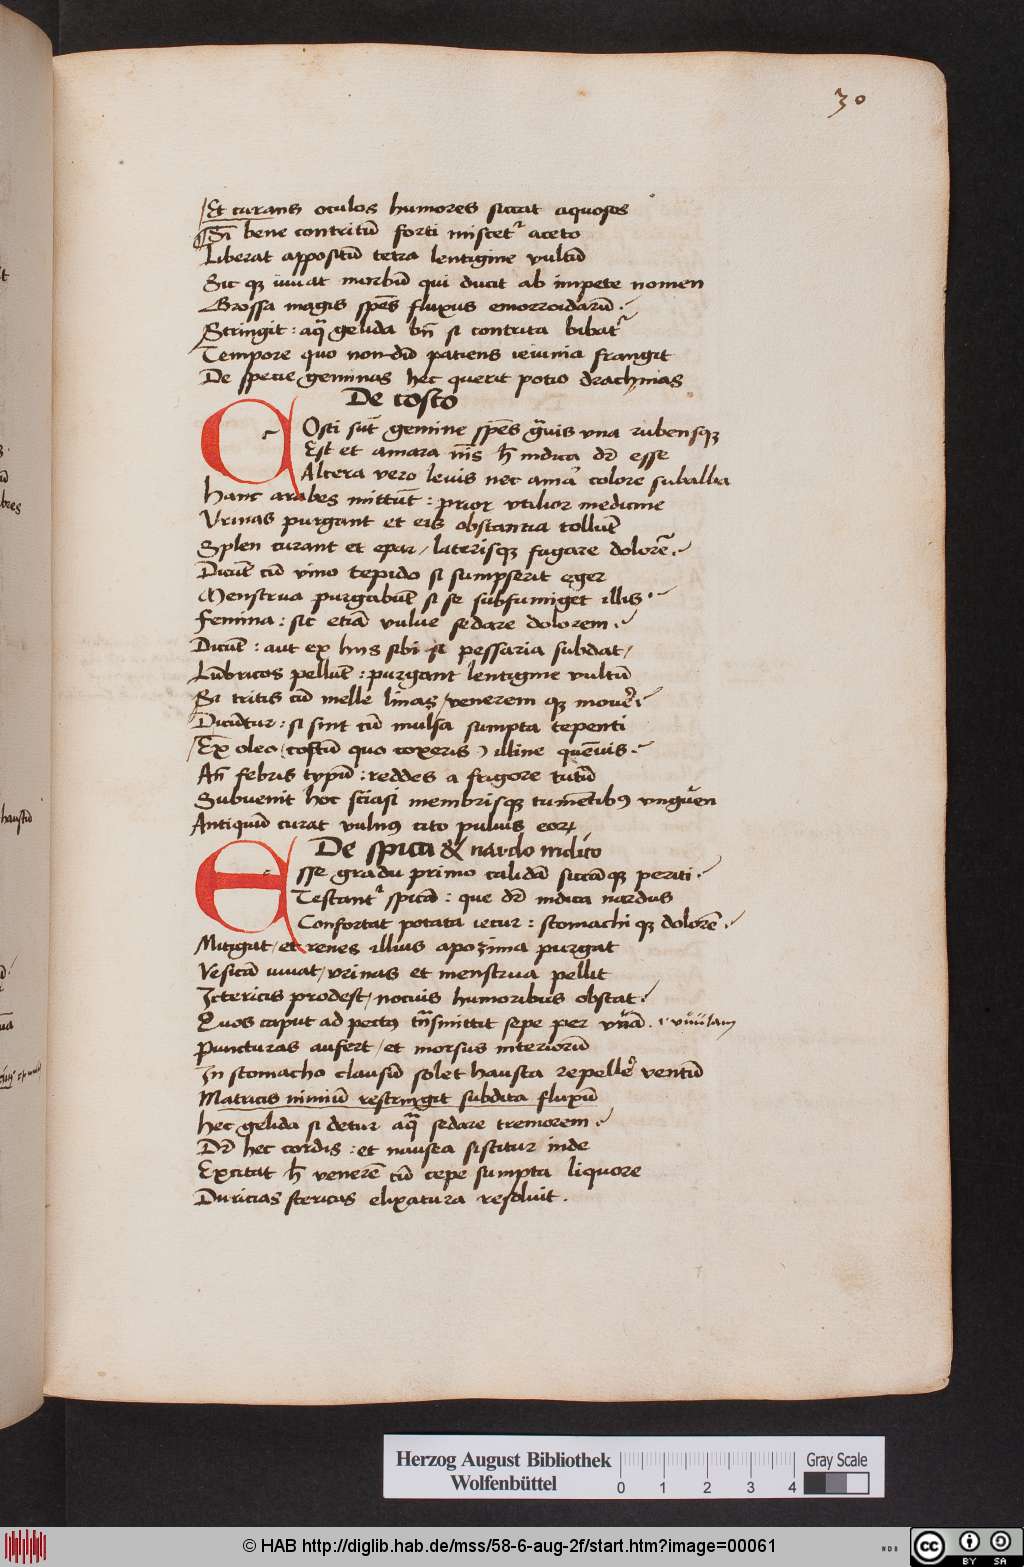 30
Et curans oculos humores siccat aquosos
Si bene contritū forti miscet᷑ aceto
Liberat appositū tetra lentigine vultū
Sic qꝫ iuuat morbū qui ducit ab impete nomen
Grossa magis spēs fluxus emorroidarū
Stringit : aqͣ gelida bn̄ si contrita bibat᷑
Tempore quo nondū patiens ieiunia frangit
De specie geminas hec querit potio drachmas
De costo
Costi sūt gemine spēs gͣuis vna rubensqꝫ
Est et amara nīs h̄ indica dr̄ esse
Altera vero leuis nec amaͣ colore subalba
Hanc arabes mittūt : prior vtilior medicine
Vrinas purgant et eis obstantia tollūt
Splen curant et epar / laterisqꝫ fugare dolorē
Dicūt cū vino tepido si sumpserit eger
Menstrua purgabūt si se subfumiget illis
Femina : sic etiā vulue sedare dolorem
Dicūt : aut ex hijs sibi si pessaria subdat /
Lūbricos pellūt : purgant lentigine vultū
Si tritis cū melle linas / venerem qꝫ mouer̄i
Dicūtur : si sint cū mulsa sumpta tepenti
Ex oleo / costū quo coxeris ) illine quēuis
An̄ febris typū : reddes a frigore tutū
Subuenit hoc sciasi membrisqꝫ tumētibꝰ vnguen
Antiquū curat vulnꝰ cito puluis eoꝝ
De spica & nardo indico
Esse gradu primo calidā siccāqꝫ periti
Testant᷑ spicā : que dr̄ indica nardus
Confortat potata iecur : stomachi qꝫ dolorē
Mitigat / et renes illius apozima purgat
Vesicā iuuat / vrinas et menstrua pellit
Ictericis prodest / nocuis humoribus obstat
Quos caput ad pectꝰ tn̄smittit sepe per vuā . i vuulam
Puncturas aufert / et morsus interiorū
In stomacho clausū solet hausta repeller̄ ventū
Matricis nimiū restringit subdita fluxū
Hec gelida si detur aqͣ sedare tremorem
Dr̄ hec cordis : et nausea sistitur inde
Excitat h̄ venerē cū cepe sumpta liquore
Duricias stericas elixatura resoluit .
Herzog August Bibliothek
Wolfenbüttel
0 1 2 3 4
Gray Scale
© HAB http://diglib.hab.de/mss/58-6-aug-2f/start.htm?image=00061
cc BY SA